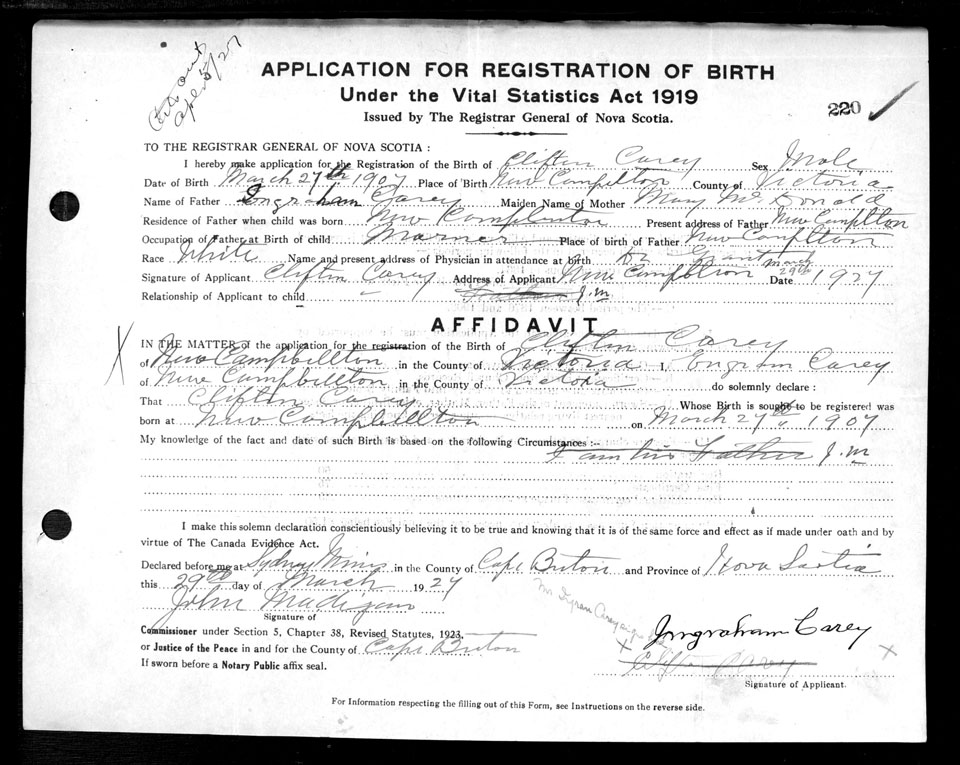 Certs out
Apl 5/27
APPLICATION FOR REGISTRATION OF BIRTH
Under the Vital Statistics Act 1919
220
Issued by The Registrar General of Nova Scotia.
TO THE REGISTRAR GENERAL OF NOVA SCOTIA :
I hereby make application for the Registration of the Birth of Clifton Carey Sex Male
Date of Birth March 27th 1907 Place of Birth New Campellton County of Victoria
Name of Father Engraham Carey Maiden Name of Mother Mary McDonald
Residence of Father when child was born New Complenton Present address of Father New Campltton
Occupation of Father at Birth of child Marner Place of birth of Father New Complton
Race White Name and present address of Physician in attendance at birth Dr Grant
Signature of Applicant Clifton Carey Address of Applicant New Campellton Date March 29th 1927
Relationship of Applicant to child " J.M
AFFIDAVIT
IN THE MATTER of the application for the registration of the Birth of Clifton Carey
of New Campbellton in the County of Victoria I, Engram Carey
of New Campbellton in the County of Victoria do solemnly declare :
That Clifton Carey Whose Birth is sought to be registered was
born at New Campbellton on March 27th 1907
My knowledge of the fact and date of such Birth is based on the following Circumstances :—
I am his Father J.M
I make this solemn declaration conscientiously believing it to be true and knowing that it is of the same force and effect as if made under oath and by
virtue of The Canada Evidence Act.
Declared before me at Sydney Mines in the County of Cape Breton and Province of Nova Scotia
this 29th day of March 1927
John Madigan
Signature of
Mr Ingram Carey sign here
Commissioner under Section 5, Chapter 38, Revised Statutes, 1923,
Inngraham Carey
or Justice of the Peace in and for the County of Cape Breton
Clifton Carey
If sworn before a Notary Public affix seal.
Signature of Applicant.
For Information respecting the filling out of this Form, see Instructions on the reverse side.